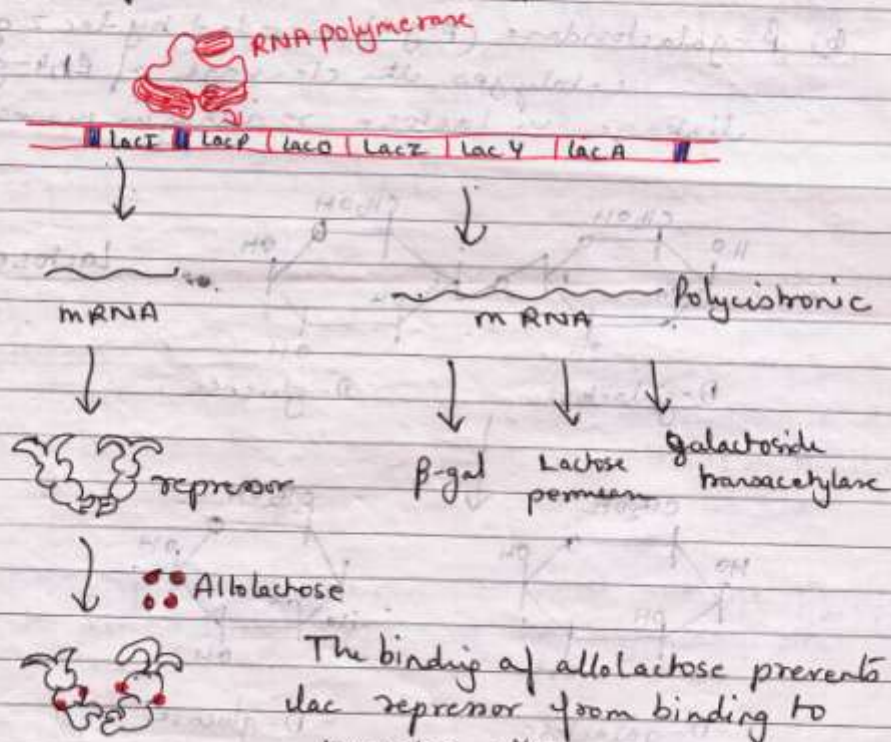 RNA polymerase
LacI LacP LacO LacZ Lac Y Lac A
mRNA
mRNA
Polycistronic
repressor
β-gal
Lactose
permease
galactoside
transacetylase
Allolactose
The binding of allolactose prevents
lac repressor from binding to